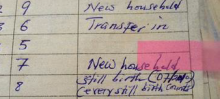 2 9 New household
3 6 Transfer in
5
7 New household,
still birth (
8 (every still birth counts)